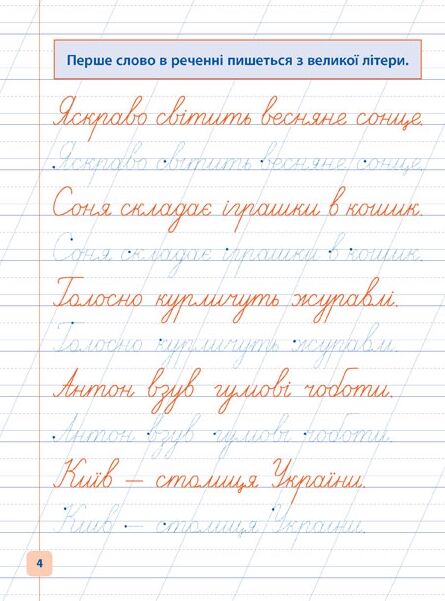 Перше слово в реченні пишеться з великої літери.
Яскраво світить весняне сонце.
Яскраво світить весняне сонце.
Соня складає іграшки в кошик.
Соня складає іграшки в кошик.
Голосно курличуть журавлі.
Голосно курличуть журавлі.
Антон взув гумові чоботи.
Антон взув гумові чоботи.
Київ — столиця України.
Київ — столиця України.
4